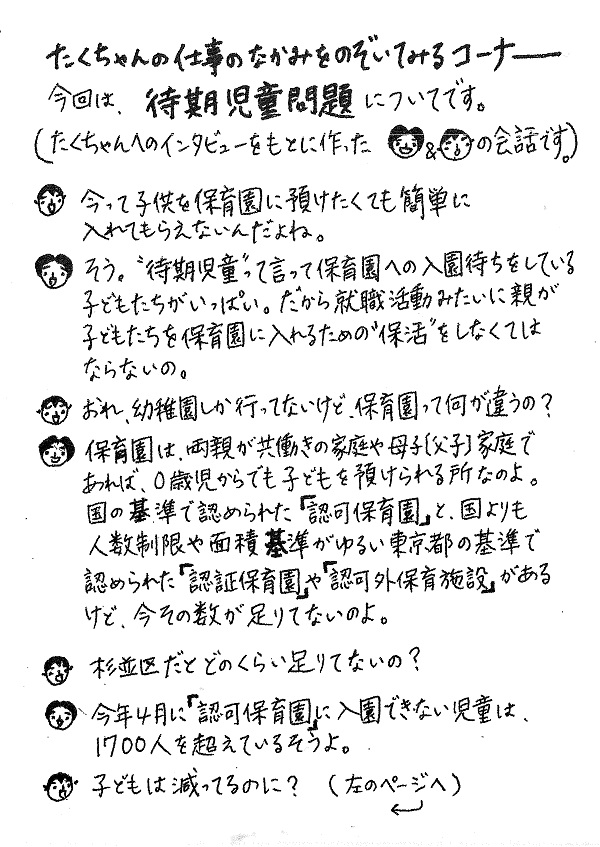 たくちゃんの仕事のなかみをのぞいてみるコーナー
今回は、待期児童問題についてです。
(たくちゃんへのインタビューをもとに作った &の会話です。)
今って子供を保育園に預けたくても簡単に
入れてもらえないんだよね。
そう。"待期児童"って言って保育園への入園待ちをしている
子どもたちがいっぱい。だから就職活動みたいに親が
子どもたちを保育園に入れるための"保活"をしなくては
ならないの。
おれ、幼稚園しか行ってないけど、保育園って何が違うの?
保育園は、両親が共働きの家庭や母子(父子)家庭で
あれば、0歳児からでも子どもを預けられる所なのよ。
国の基準で認められた「認可保育園」と、国よりも
人数制限や面積基準がゆるい東京都の基準で
認められた「認証保育園」や「認可外保育施設」がある
けど、今その数が足りてないのよ。
杉並区だとどのくらい足りてないの?
今年4月に「認可保育園」に入園できない児童は、
1700人を超えているそうよ。
子どもは減ってるのに? (左のページへ)